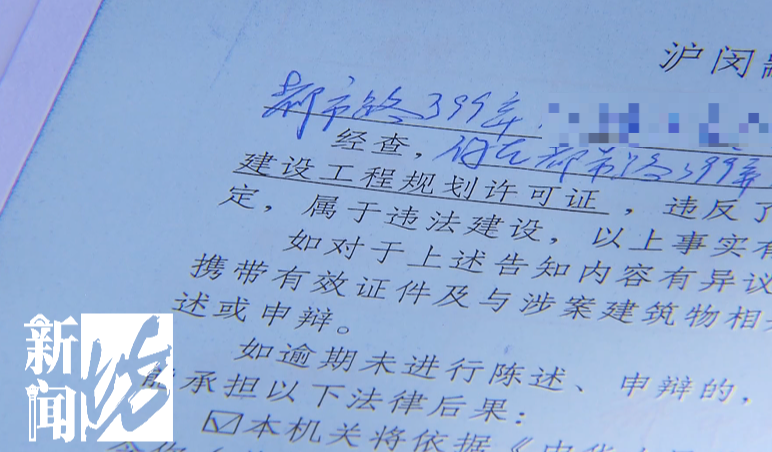 沪闵
都市路399弄
经查,你在都市路399弄
建设工程规划许可证,违反了
定,属于违法建设,以上事实有
如对于上述告知内容有异议
携带有效证件及与涉案建筑物相
述或申辩。
如逾期未进行陈述、申辩的,
承担以下法律后果:
☑本机关将依据《中华人民
新闻坊